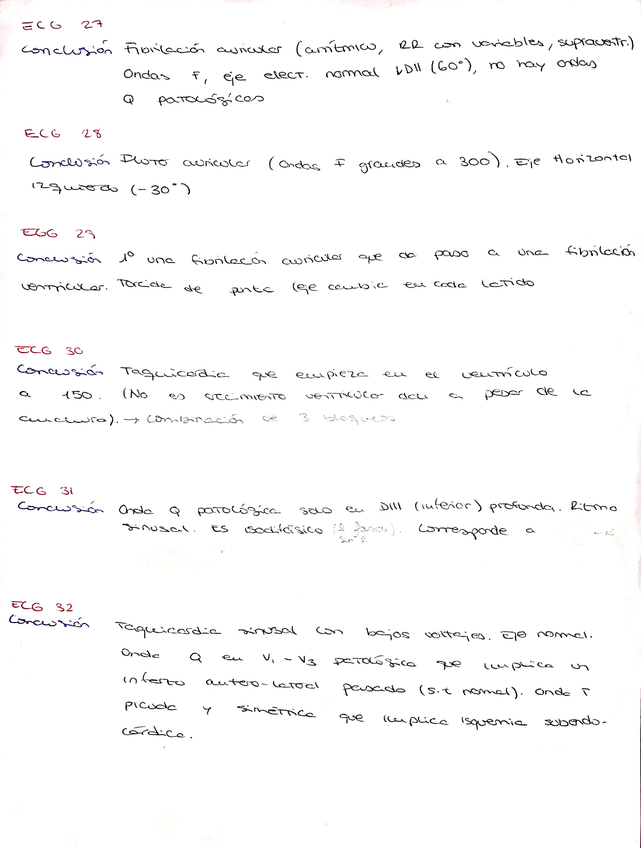 ECG 27
Conclusión Fibrilación auricular (arrítmico, RR con variables, supraventr.)
Ondas F, eje elect. normal DII (60°), no hay ondas
Q patológicas
ECG 28
Conclusión Fluto auricular (Ondas F grandes a 300). Eje Horizontal
izquierdo (-30°)
ECG 29
Conclusión 1º una fibrilación auricular que da paso a una fibrilación
ventricular. Torcida de punta (eje cambia en cada latido
ECG 30
Conclusión Taquicardia que empieza en el ventrículo
a 150. (No es crecimiento ventricular a pesar de la
anchura). → Combinación de 3 bloqueos
ECG 31
Conclusión Onda Q patológica solo en DIII (inferior) profunda. Ritmo
sinusal. Es isodifásico (2 fases). Corresponde a
ECG 32
Conclusión Taquicardia sinusal con bajos voltajes. Eje normal.
Onda Q en V1 - V3 patológica que implica un
infarto antero-lateral pasado (s.t normal). Onda T
picuda y simétrica que implica isquemia subendo-
cárdica.